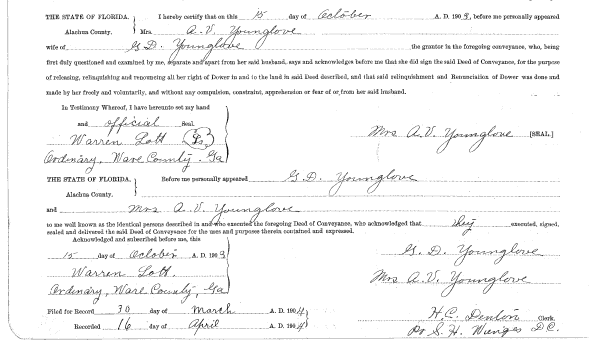 THE STATE OF FLORIDA. } I hereby certify that on this 15 day of October A. D. 1903, before me personally appeared
Alachua County. Mrs. A. V. Younglove
wife of G. D. Younglove the grantor in the foregoing conveyance, who, being
first duly questioned and examined by me, separate and apart from her said husband, says and acknowledges before me that she did sign the said Deed, for the purpose
of releasing, relinquishing and renouncing all her right of Dower in and to the land in said Deed described, and that said relinquishment and Renunciation of Dower was done and
made by her freely and voluntarily, and without any compulsion, constraint, apprehension or fear of or from her said husband.
In Testimony Whereof, I have hereunto set my hand
and official Seal.
Warren Lott
Mrs A. V. Younglove [SEAL.]
Ordinary, Ware County, Ga
THE STATE OF FLORIDA. } Before me personally appeared G. D. Younglove
Alachua County.
and Mrs A. V. Younglove
to me well known as the identical persons described in and who executed the foregoing Deed of Conveyance, who acknowledged that they executed, signed,
sealed and delivered the said Deed of Conveyance for the uses and purposes therein contained and expressed.
Acknowledged and subscribed before me, this
15 day of October A. D. 1903
G. D. Younglove
Warren Lott.
Mrs A. V. Younglove
Ordinary, Ware County, Ga
Filed for Record 30 day of March A. D. 1904
H. C. Denton Clerk.
Recorded 16 day of April A. D. 1904
S. H. Wienges D. C.